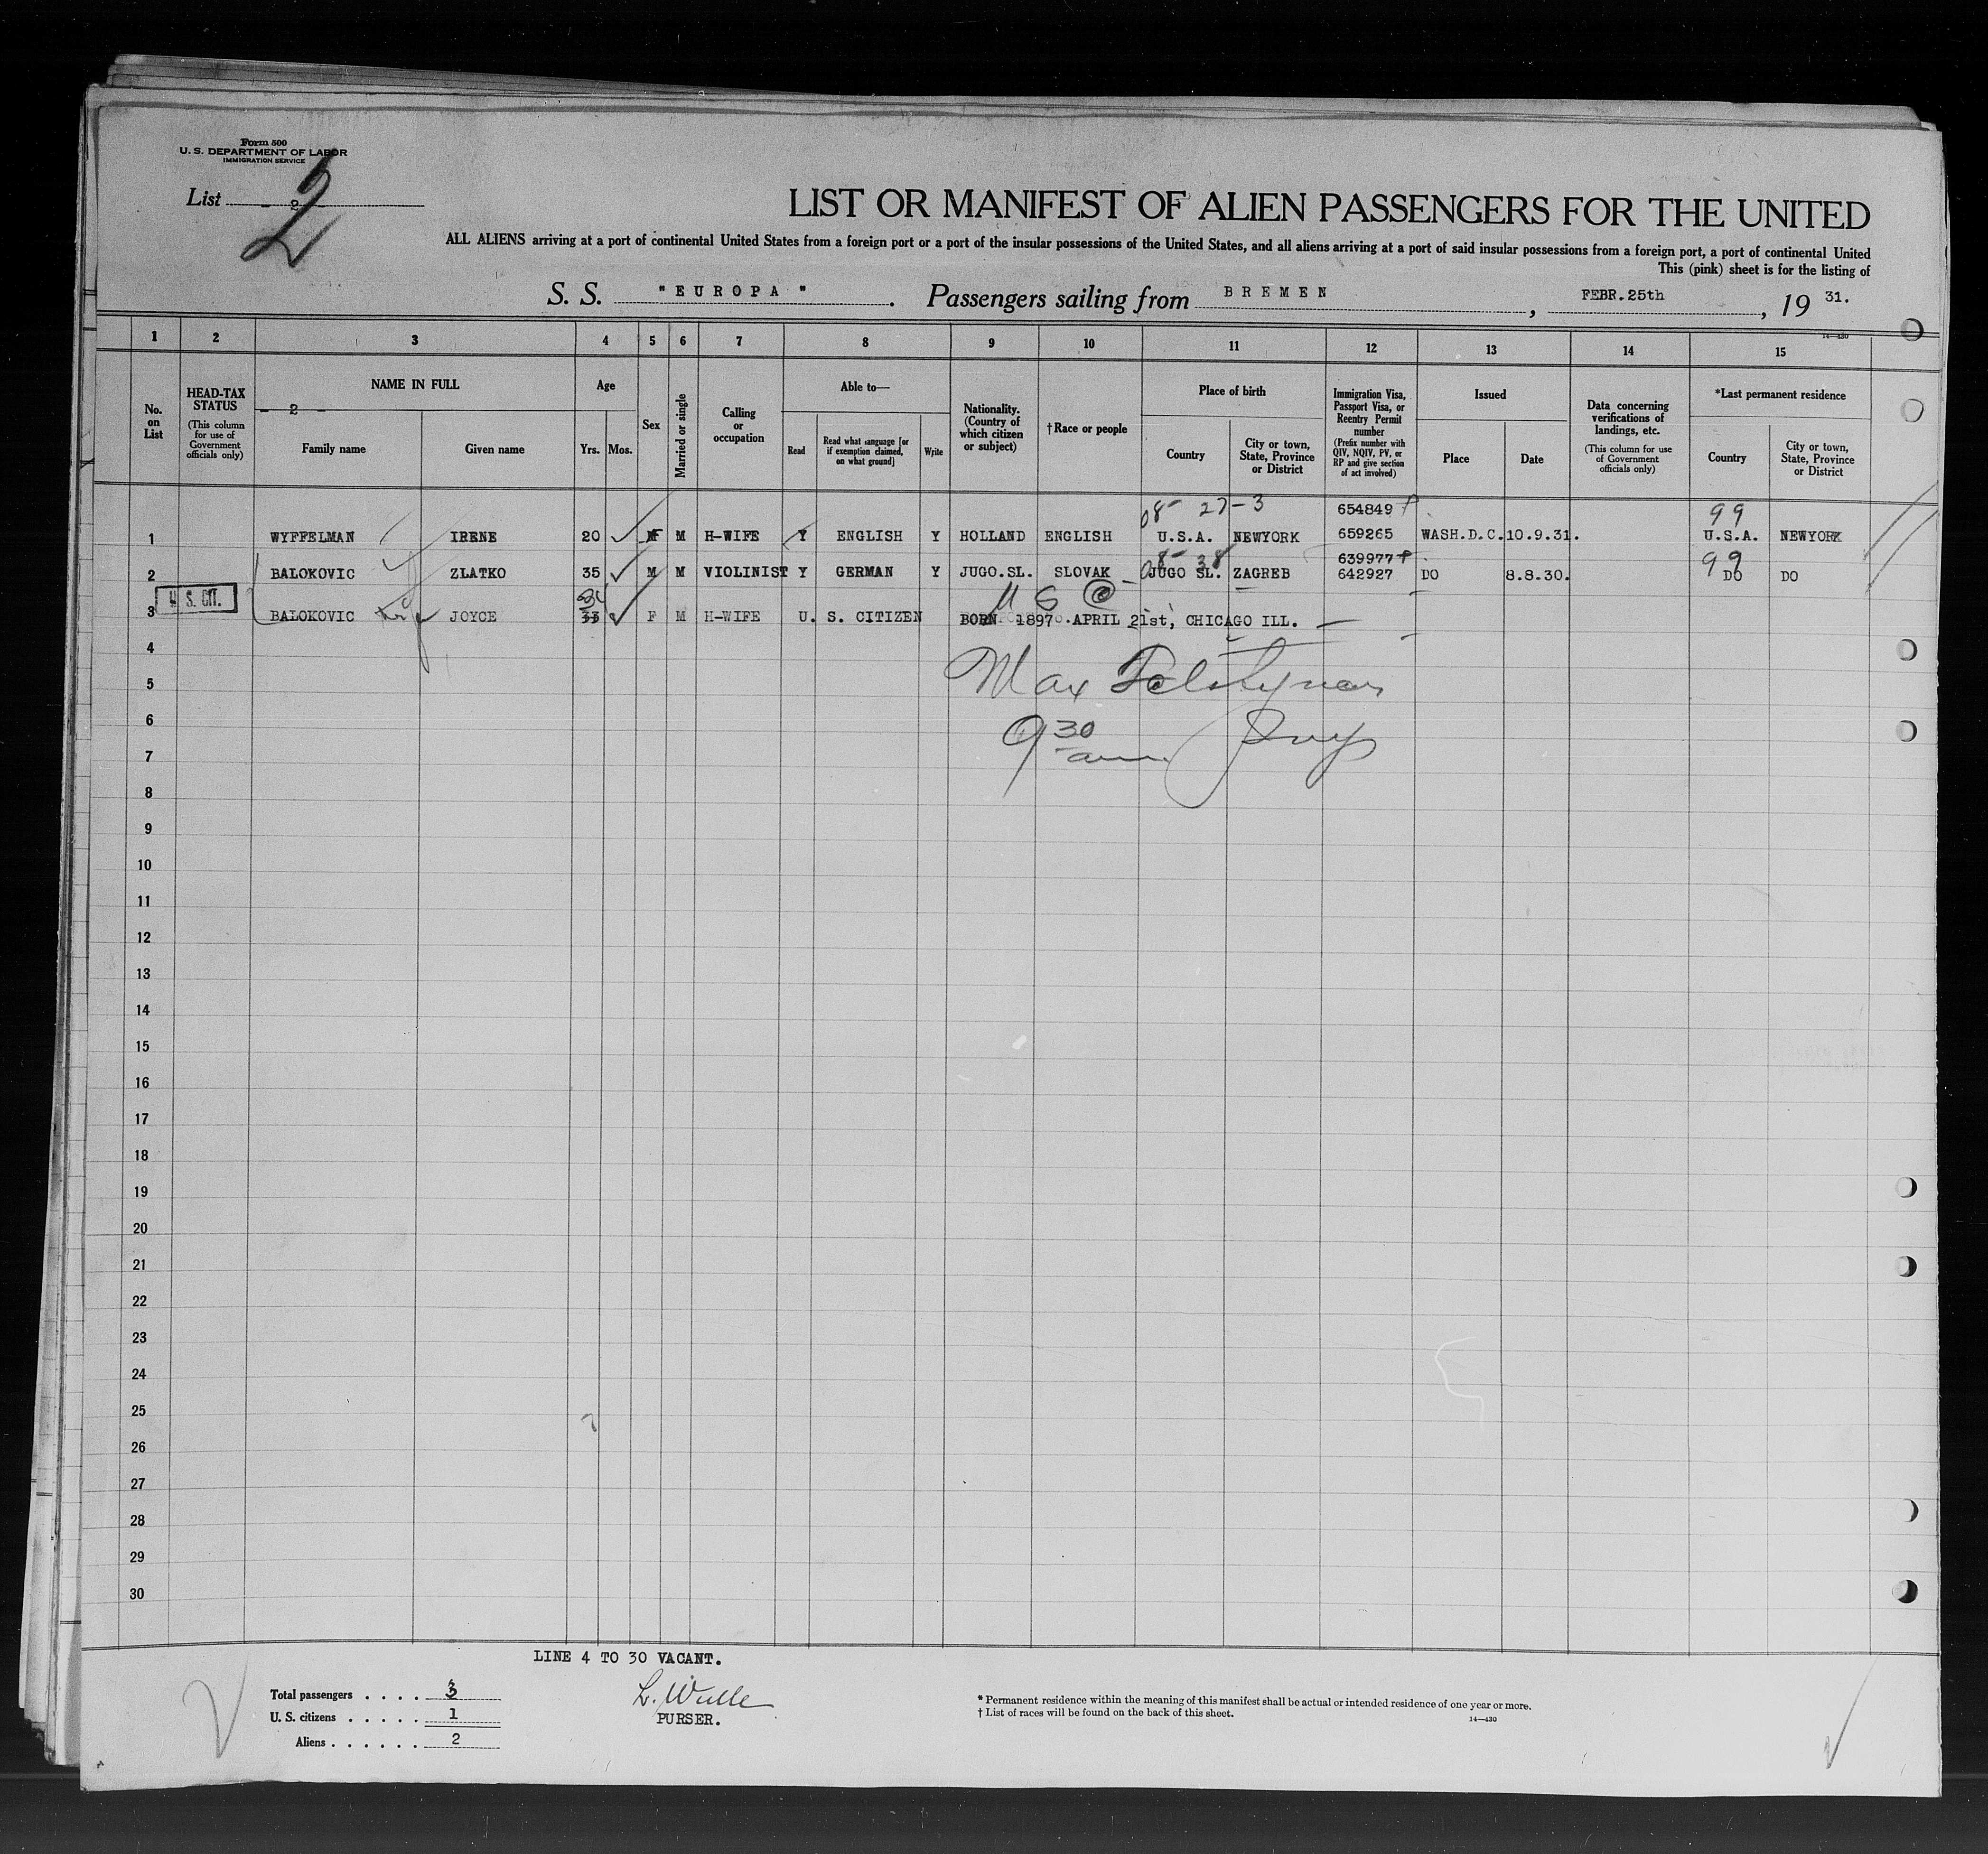 Form 500
U. S. DEPARTMENT OF LABOR
IMMIGRATION SERVICE
List - 2 -
2
LIST OR MANIFEST OF ALIEN PASSENGERS FOR THE UNITED
ALL ALIENS arriving at a port of continental United States from a foreign port or a port of the insular possessions of the United States, and all aliens arriving at a port of said insular possessions from a foreign port, a port of continental United
This (pink) sheet is for the listing of
S. S. "EUROPA". Passengers sailing from BREMEN, FEBR.25th, 19 31.
14—430
1 2 3 4 5 6 7 8 9 10 11 12 13 14 15
No. on List
HEAD-TAX STATUS
(This column for use of Government officials only)
NAME IN FULL
- 2 -
Family name Given name
Age
Yrs. Mos.
Sex
Married or single
Calling or occupation
Able to—
Read
Read what language [or if exemption claimed, on what ground]
Write
Nationality. (Country of which citizen or subject)
†Race or people
Place of birth
Country
City or town, State, Province or District
Immigration Visa, Passport Visa, or Reentry Permit number
(Prefix number with QIV, NQIV, PV, or RP and give section of act involved)
Issued
Place Date
Data concerning verifications of landings, etc.
(This column for use of Government officials only)
*Last permanent residence
Country
City or town, State, Province or District
08- 27-3 654849 P 99
1 WYFFELMAN IRENE 20 F M H-WIFE Y ENGLISH Y HOLLAND ENGLISH U.S.A. NEWYORK 659265 WASH.D.C. 10.9.31. U.S.A. NEWYORK
08- 38 639977 P 99
2 BALOKOVIC ZLATKO 35 M M VIOLINIST Y GERMAN Y JUGO.SL. SLOVAK JUGO SL. ZAGREB 642927 DO 8.8.30. DO DO
U. S. CIT.
34 U S C
3 BALOKOVIC JOYCE 33 F M H-WIFE U. S. CITIZEN BORN 1897 APRIL 21st, CHICAGO ILL.
4
5 Max
6 9 30
7 am Insp
8
9
10
11
12
13
14
15
16
17
18
19
20
21
22
23
24
25
26
27
28
29
30
LINE 4 TO 30 VACANT.
Total passengers . . . . 3
U. S. citizens . . . . . 1
Aliens . . . . . . 2
L. Wulle
PURSER.
* Permanent residence within the meaning of this manifest shall be actual or intended residence of one year or more.
† List of races will be found on the back of this sheet.
14—430